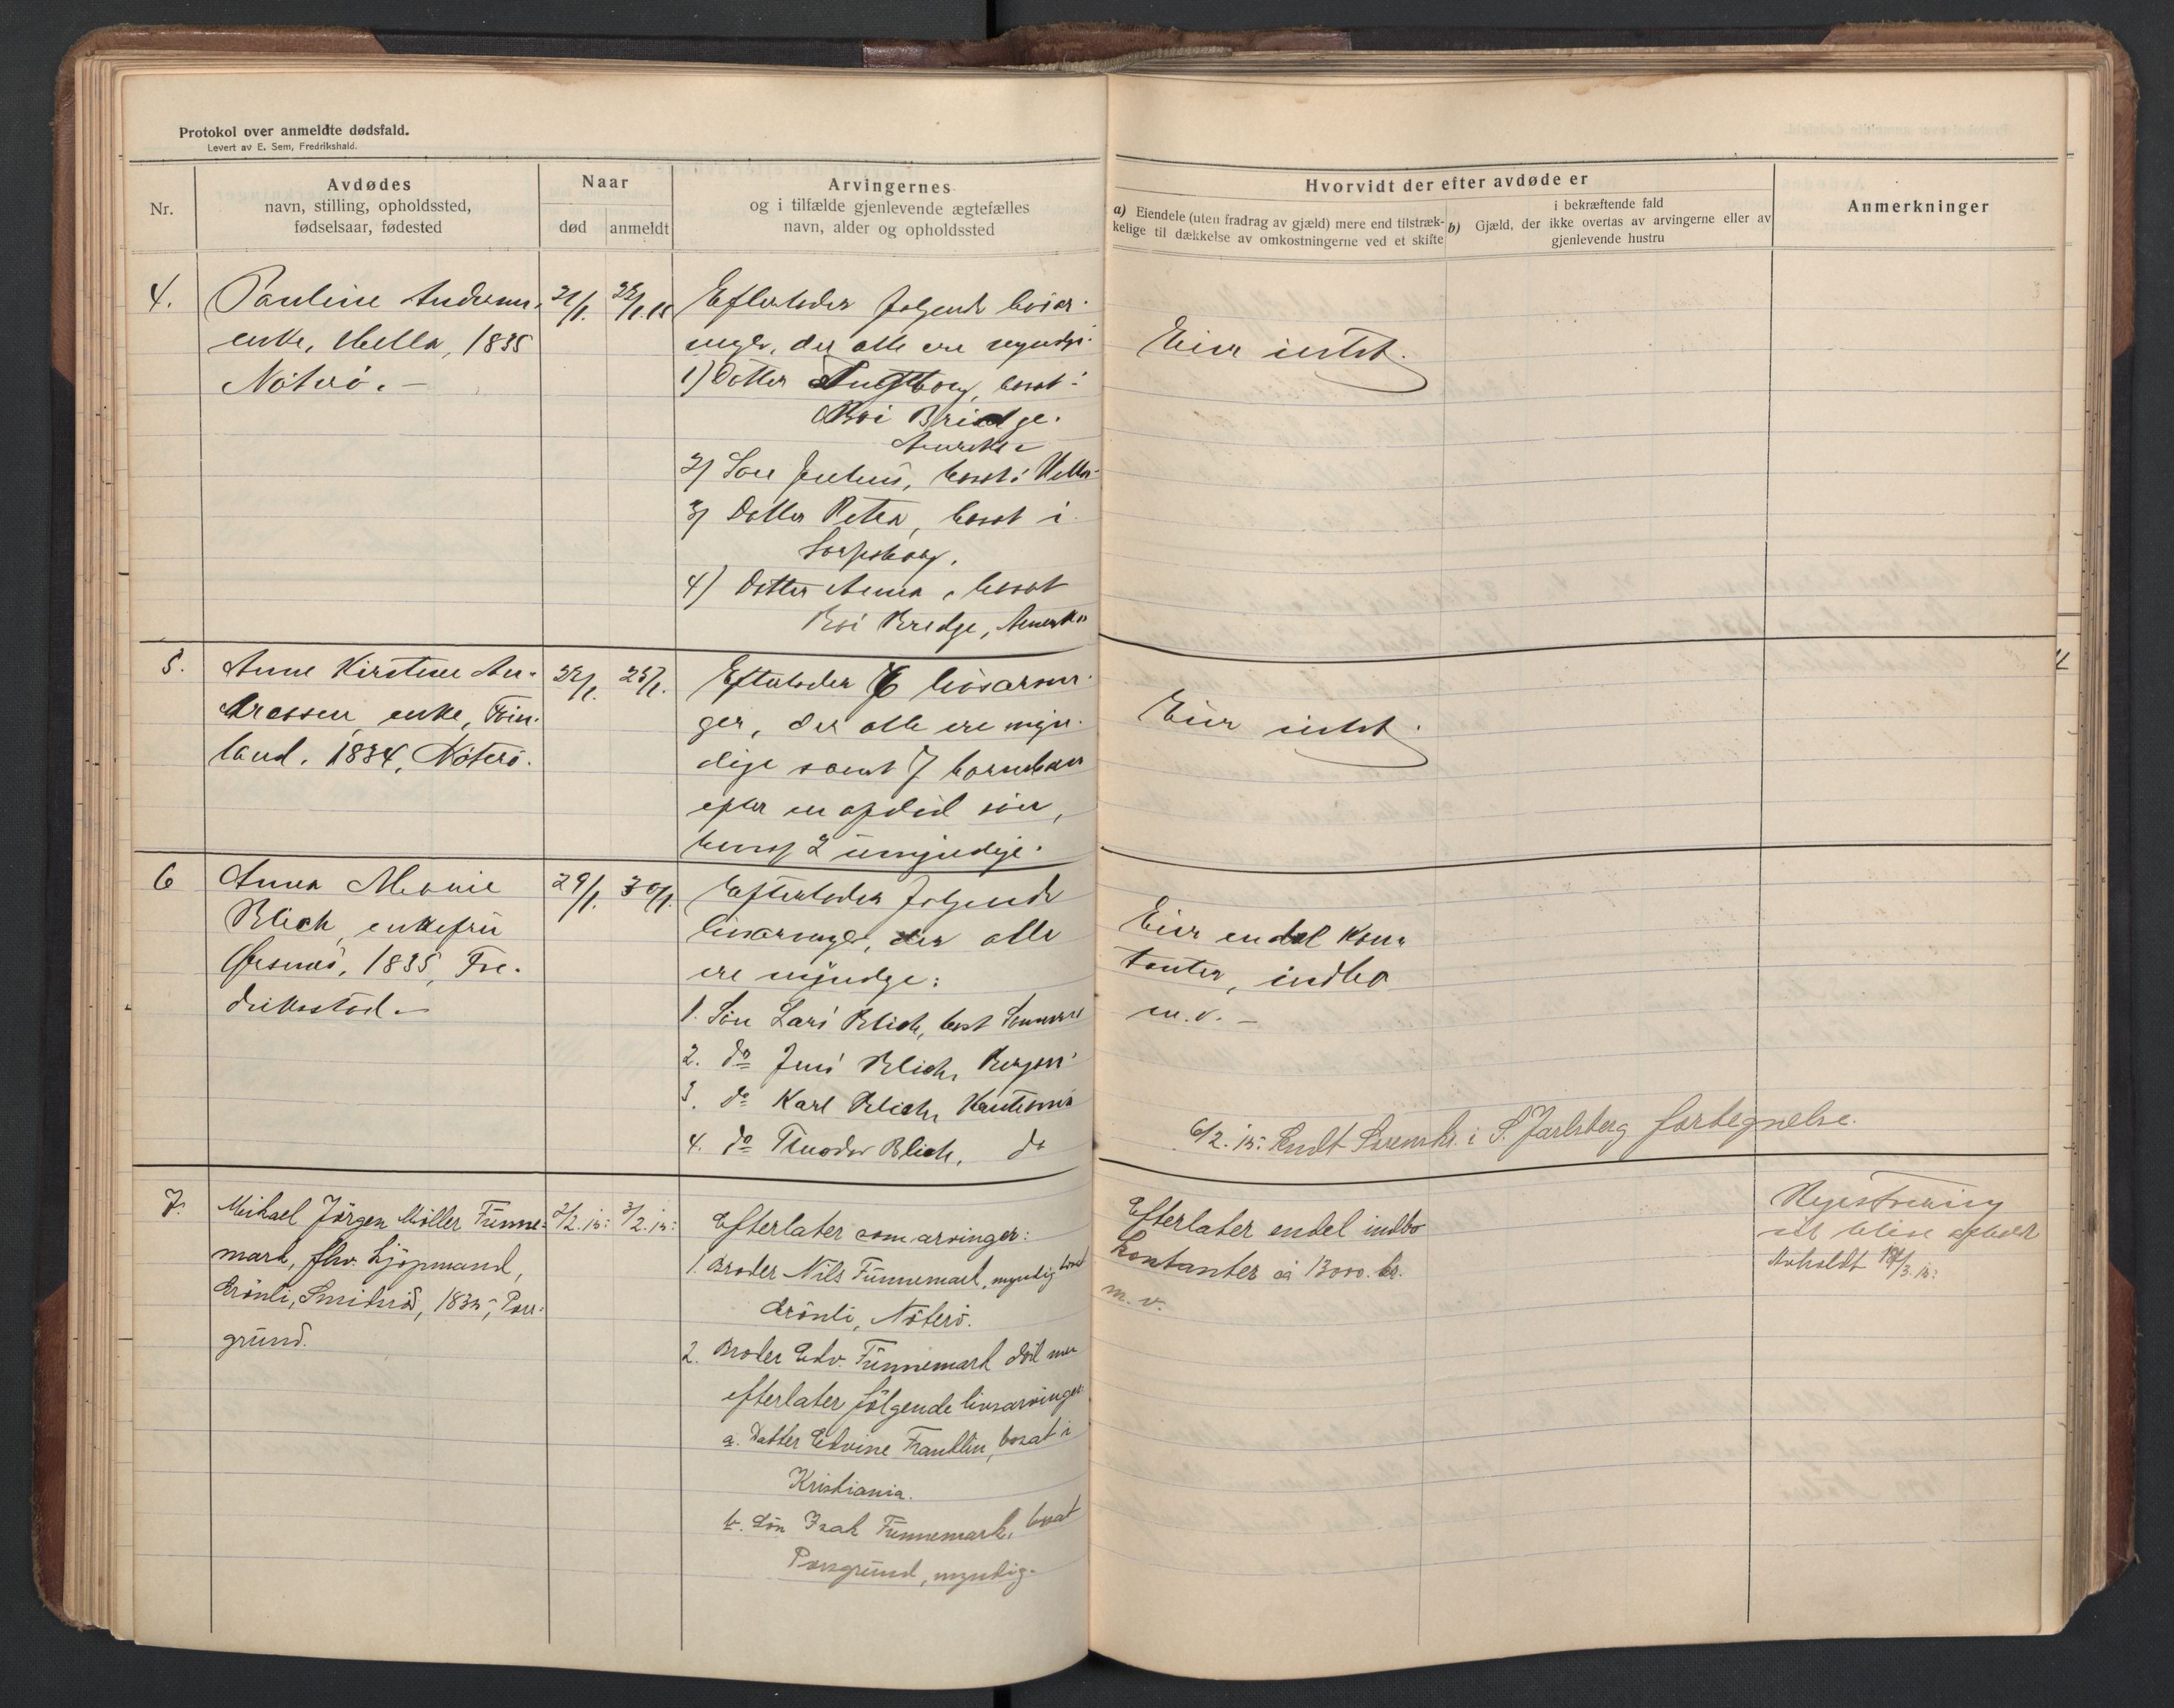 Protokol over anmeldte dødsfald.
Levert av E. Sem, Fredrikshald.
Nr.
Avdødes
navn, stilling, opholdssted,
fødselsaar, fødested
Naar
død
anmeldt
Arvingernes
og i tilfælde gjenlevende ægtefælles
navn, alder og opholdssted
Hvorvidt der efter avdøde er
a) Eiendele (uten fradrag av gjæld) mere end tilstræk-
kelige til dækkelse av omkostningerne ved et skifte
i bekræftende fald
b) Gjæld, der ikke overtas av arvingerne eller av
gjenlevende hustru
Anmerkninger
4.
Pauline Andersen,
enke, Hella, 1835
Nøterø.
21/1.
22/1.15
Efterlader følgende livsar-
inger, der alle ere myndige
1) Datter Ingeborg, bosat i
Boi Bridge.
Amerika
2) Søn Julius, bosat i Hella
3) Datter Petra, bosat i
Sarpsborg.
4) Datter Anna, bosat
Boi Bredge, Amerika
Eier intet.
5.
Anne Kirstine An-
dressen, enke, Føin-
land. 1834, Nøterø.
22/1.
25/1.
Efterlader 6 livsarvin-
ger, der alle ere myn-
dige samt 7 barnebarn
efter en afdød søn,
hvoraf 2 umyndige.
Eier intet.
6
Anna Marie
Blich, enkefru
1835, Fre-
drikstad.
29/1.
30/1.
Efterlader følgende
livsarvinger, der alle
ere myndige:
1. Søn Lars Blich, bosat
2. do Jens Blich, Bergen
3. do Karl Blich, Kristiania
4. do Theodor Blich, do
Eier endel kon-
tanter, indbo
m. v.
6/2. 15: Sendt i S. Jarlsberg fortegnelse.
7.
Mikael Jörgen Möller Funne-
mark, fhv. kjøpmand,
Grönli, Smidsrød, 1835, Pors-
grund.
2/2. 15:
3/2. 15:
Efterlater som arvinger:
1. Broder Nils Funnemark, myndig bosat
Grönli, Nöterö.
2. Broder Edv. Funnemark död men
efterlater fölgende livsarvinger:
a. Datter Edvine Franklin, bosat i
Kristiania.
b. Sön Isak Funnemark, bosat
Porsgrund, myndig.
Efterlater endel indbo
kontanter ca 13000. kr.
m. v.
Registrering
vil blive
Avholdt 18/3. 15: